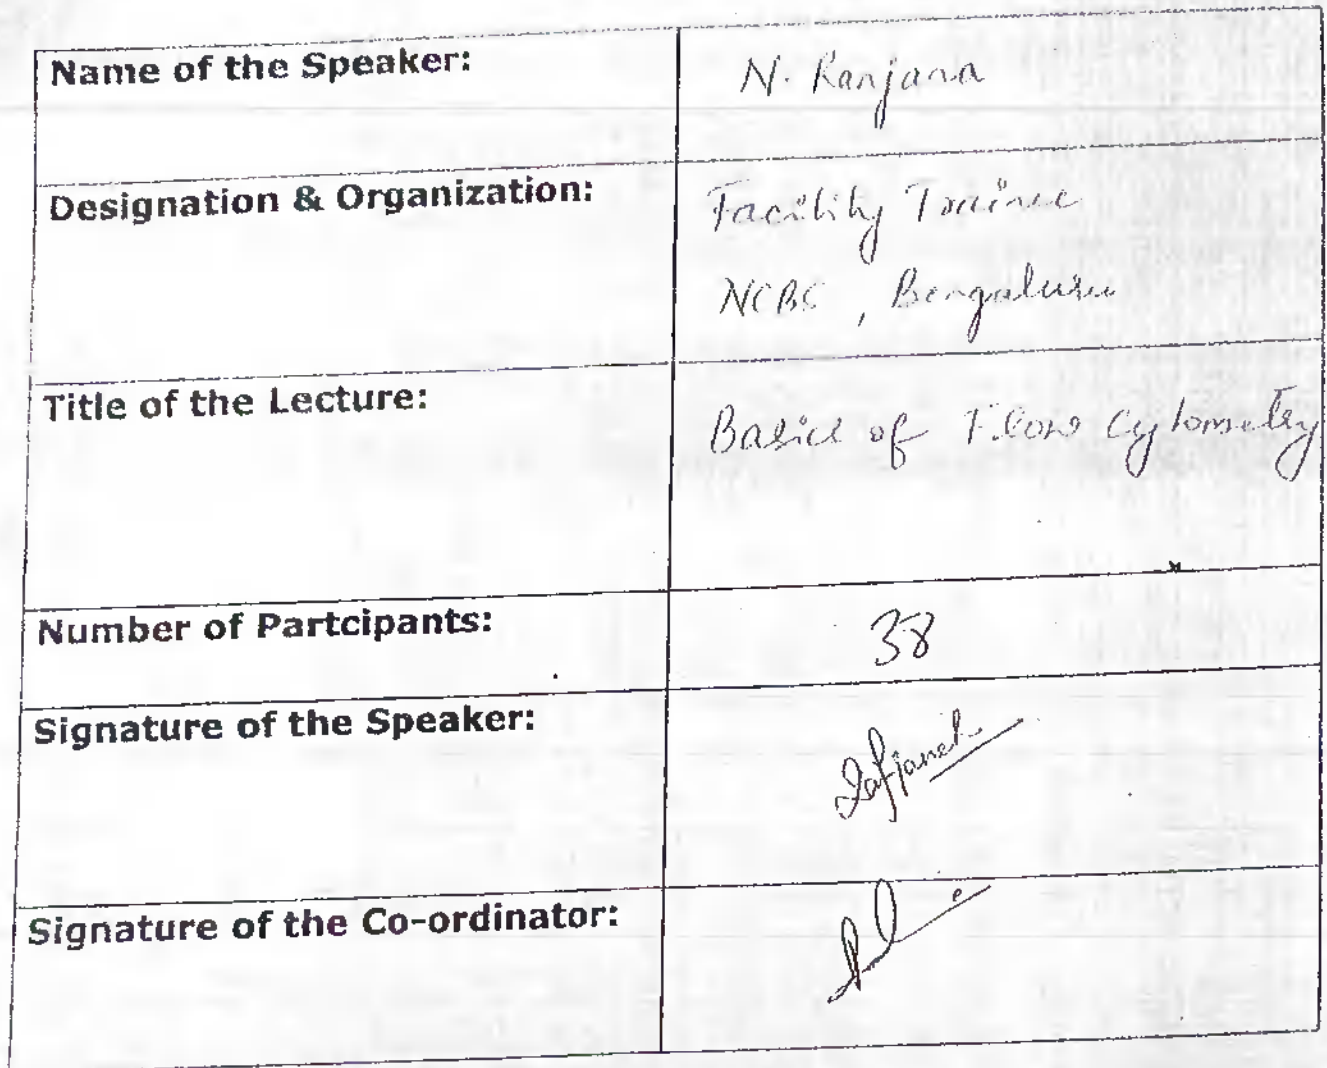 Name of the Speaker: N. Ranjana
Designation & Organization: Facility Trainee
NCBS, Bengaluru
Title of the Lecture: Basics of Flow Cytometry
Number of Partcipants: 38
Signature of the Speaker:
Signature of the Co-ordinator: